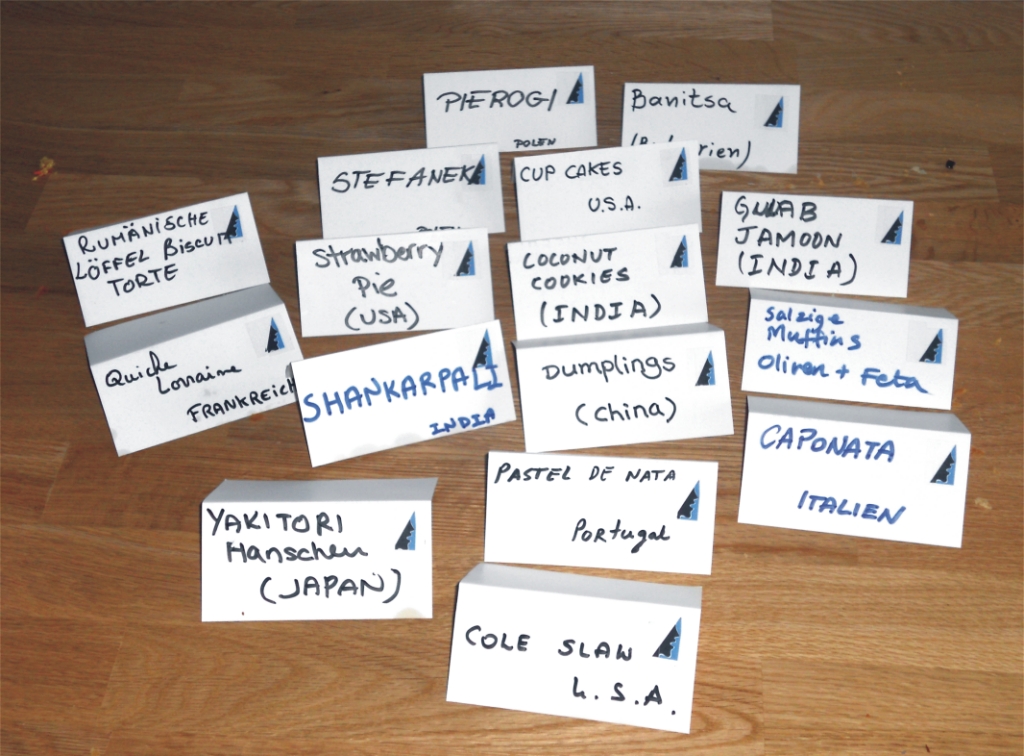 PIEROGI
POLEN
Banitsa
STEFANEK
CUP CAKES
U.S.A.
RUMÄNISCHE
LÖFFEL BiSCUIT
TORTE
Strawberry
Pie
(USA)
COCONUT
COOKIES
(INDIA)
GULAB
JAMOON
(INDIA)
Quiche
Lorraine
FRANKREICH
SHANKARPALI
INDIA
Dumplings
(China)
Salzige
Muffins
Oliven + Feta
CAPONATA
ITALIEN
YAKITORI
Hanschen
(JAPAN)
PASTEL DE NATA
PORtugal
COLE SLAW
U.S.A.